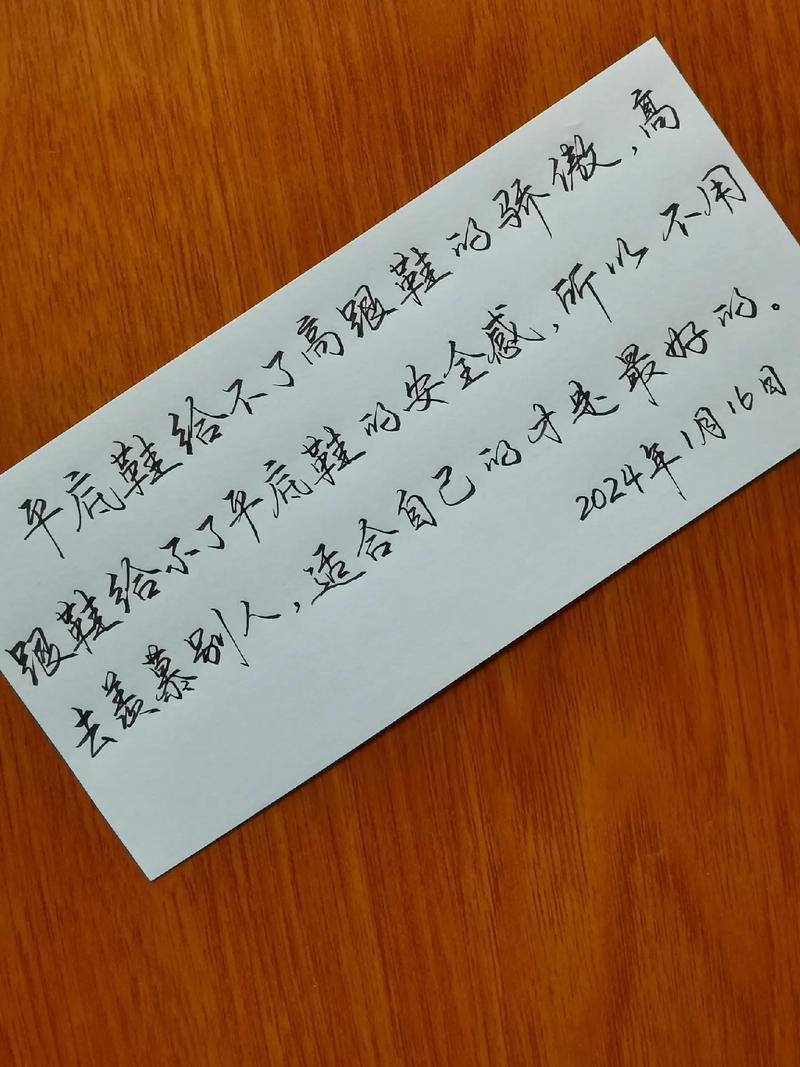 平底鞋给不了高跟鞋的骄傲,高
跟鞋给不了平底鞋的安全感,所以不用
去羡慕别人,适合自己的才是最好的。
2024年1月16日